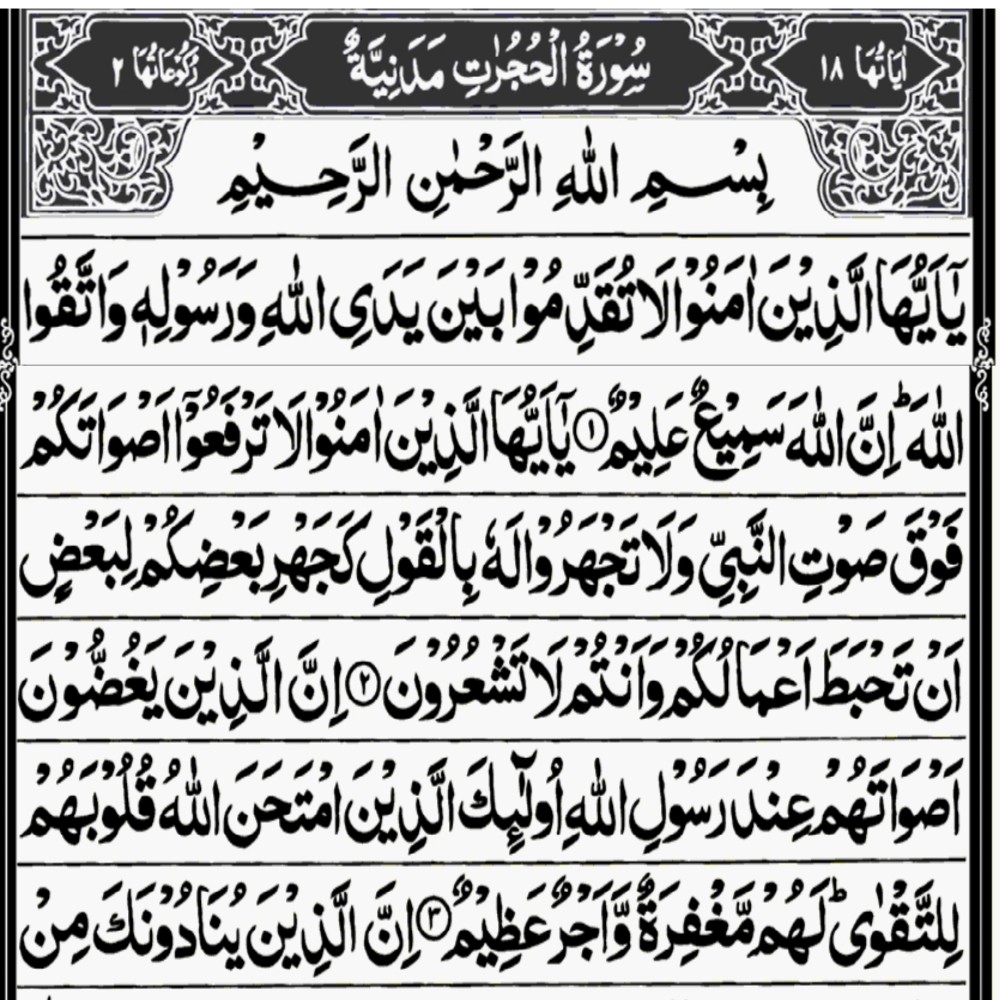 اٰیَاتُهَا ١٨ سُوْرَةُ الْحُجُرٰتِ مَدَنِیَّةٌ رُكُوْعَاتُهَا ٢
بِسْمِ اللهِ الرَّحْمٰنِ الرَّحِیْمِ
یٰۤاَیُّهَا الَّذِیْنَ اٰمَنُوْا لَا تُقَدِّمُوْا بَیْنَ یَدَیِ اللهِ وَرَسُوْلِهٖ وَاتَّقُوا
اللهَ ؕ اِنَّ اللهَ سَمِیْعٌ عَلِیْمٌ ١ یٰۤاَیُّهَا الَّذِیْنَ اٰمَنُوْا لَا تَرْفَعُوْۤا اَصْوَاتَكُمْ
فَوْقَ صَوْتِ النَّبِیِّ وَلَا تَجْهَرُوْا لَهٗ بِالْقَوْلِ كَجَهْرِ بَعْضِكُمْ لِبَعْضٍ
اَنْ تَحْبَطَ اَعْمَالُكُمْ وَاَنْتُمْ لَا تَشْعُرُوْنَ ٢ اِنَّ الَّذِیْنَ یَغُضُّوْنَ
اَصْوَاتَهُمْ عِنْدَ رَسُوْلِ اللهِ اُولٰٓئِكَ الَّذِیْنَ امْتَحَنَ اللهُ قُلُوْبَهُمْ
لِلتَّقْوٰی ؕ لَهُمْ مَّغْفِرَةٌ وَّاَجْرٌ عَظِیْمٌ ٣ اِنَّ الَّذِیْنَ یُنَادُوْنَكَ مِنْ